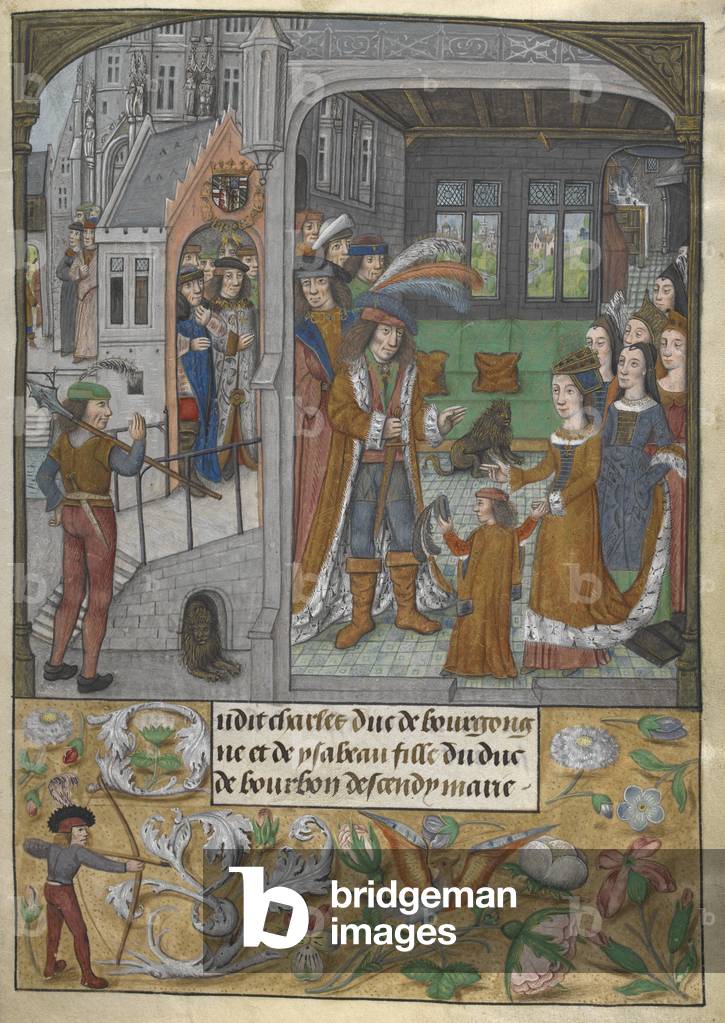 Dudit charles duc de bourgong
ne et de ysabeau fille du duc
de bourbon descendy marie
b bridgeman
images